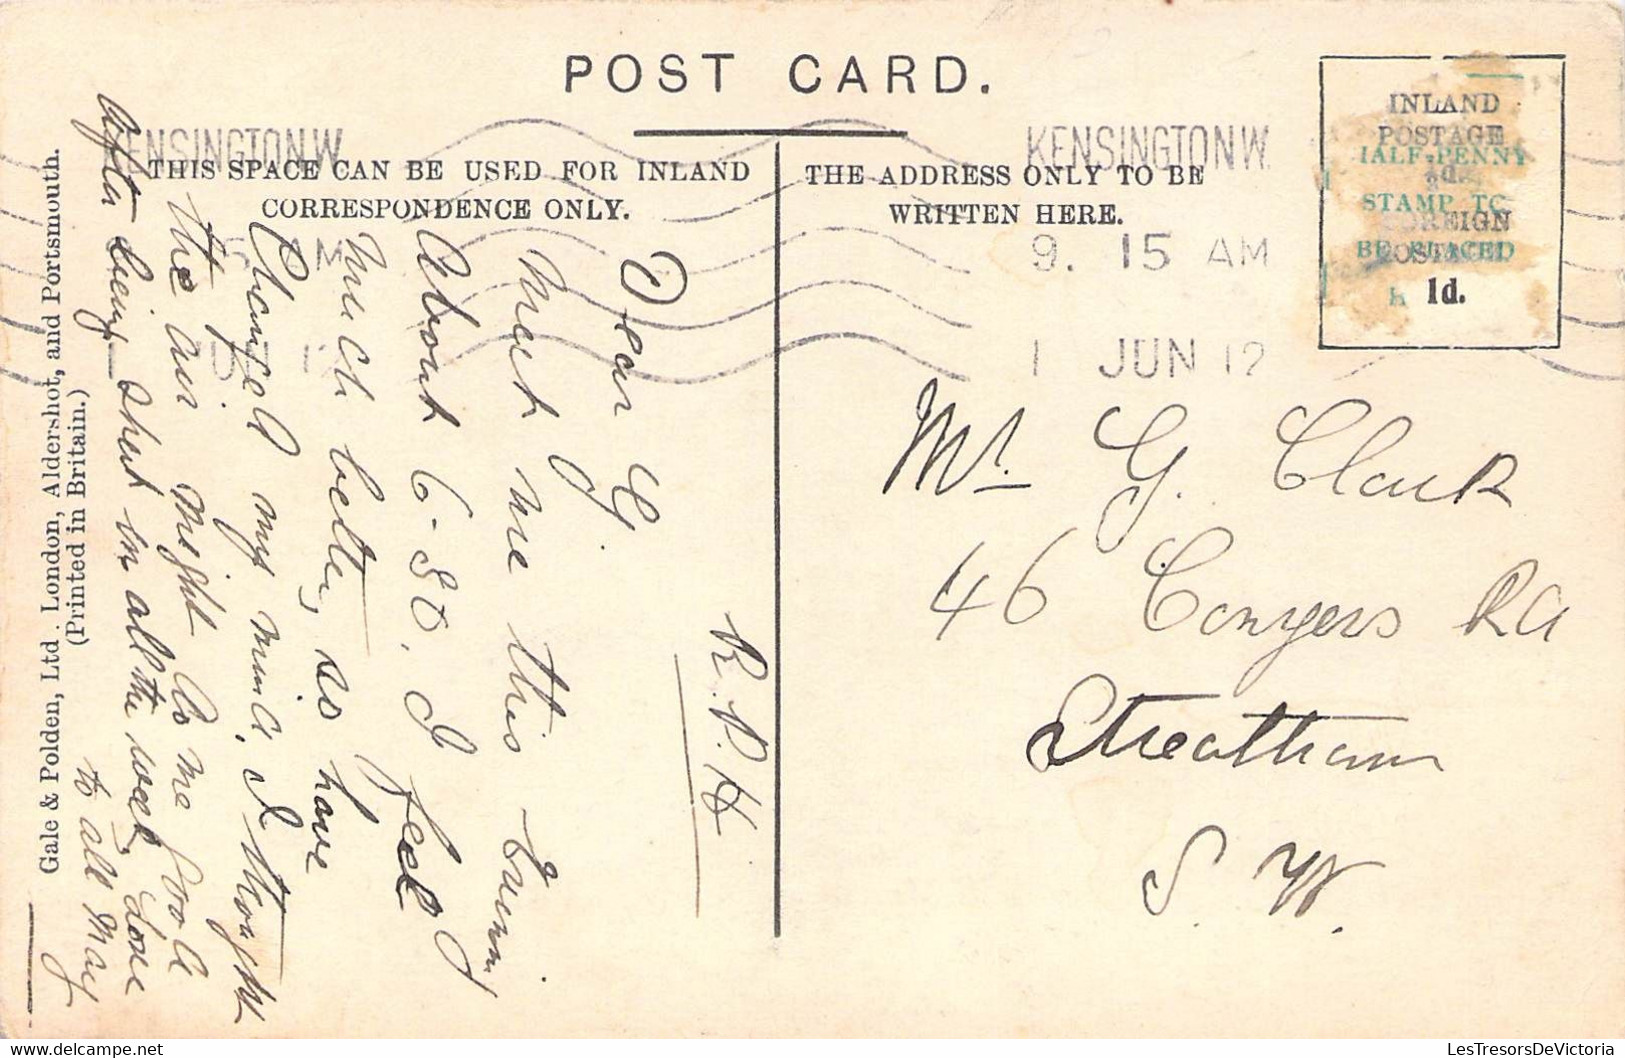 POST CARD.
KENSINGTON W.
KENSINGTON W.
THIS SPACE CAN BE USED FOR INLAND
CORRESPONDENCE ONLY.
THE ADDRESS ONLY TO BE
WRITTEN HERE.
9. 15 AM
1 JUN 12
INLAND
POSTAGE
HALF-PENNY
½d.
STAMP TO
FOREIGN
BE PLACED
POSTAGE
1d.
Dear G.
Meet me this Evening
About 6-30, I feel
much better, so have
Changed my mind, I thought
the air might do me good
after being shut in all the week, love
to all May
R.P.H
Mr. G. Clark
46 Conyers Rd
Streatham
S. W.
Gale & Polden, Ltd. London, Aldershot, and Portsmouth.
(Printed in Britain.)
LesTresorsDeVictoria